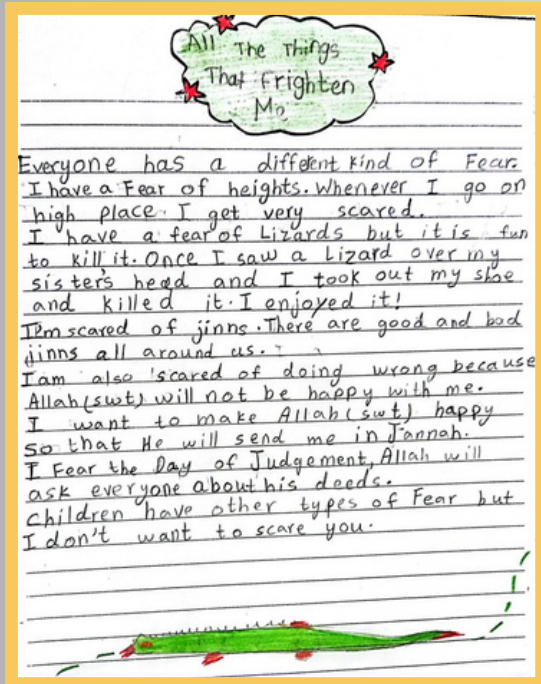 All The Things
That Frighten
Me
Everyone has a different kind of Fear.
I have a Fear of heights. Whenever I go on
high place. I get very scared.
I have a fear of Lizards but it is fun
to kill it. Once I saw a Lizard over my
sister's head and I took out my shoe
and killed it. I enjoyed it!
I'm scared of jinns. There are good and bad
jinns all around us.
I am also scared of doing wrong because
Allah (swt) will not be happy with me.
I want to make Allah (swt) happy
so that He will send me in Jannah.
I Fear the Day of Judgement, Allah will
ask everyone about his deeds.
Children have other types of Fear but
I don't want to scare you.